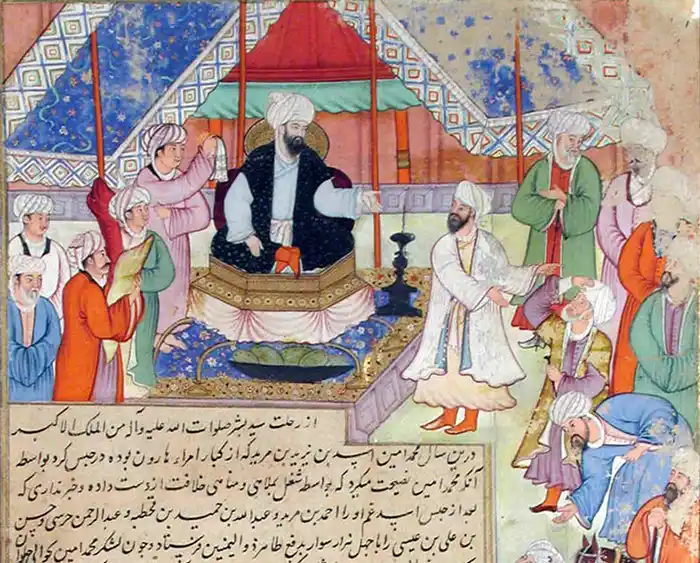 از رحلت سید بشر صلوات الله علیه وآله من الملک الاکبر
درین سال محمد امین اسد بن یزید بن مزید که از کبار امراء هارون بوده در حبس کرد بواسطه
آنکه محمد امین نصیحت میکرد که بواسطه تشغل بملاهی و مناهی خلافت از دست داده و خبر نداری که
بعد از حبس اسد عم او را احمد بن مزید و عبدالله بن حمید بن قحطبه و عبدالرحمن حرسی و حسین
بن علی بن عیسی را با چهل هزار سوار بدفع طاهر ذوالیمینین فرستاد و چون لشکر محمد امین بحوالی حلوان